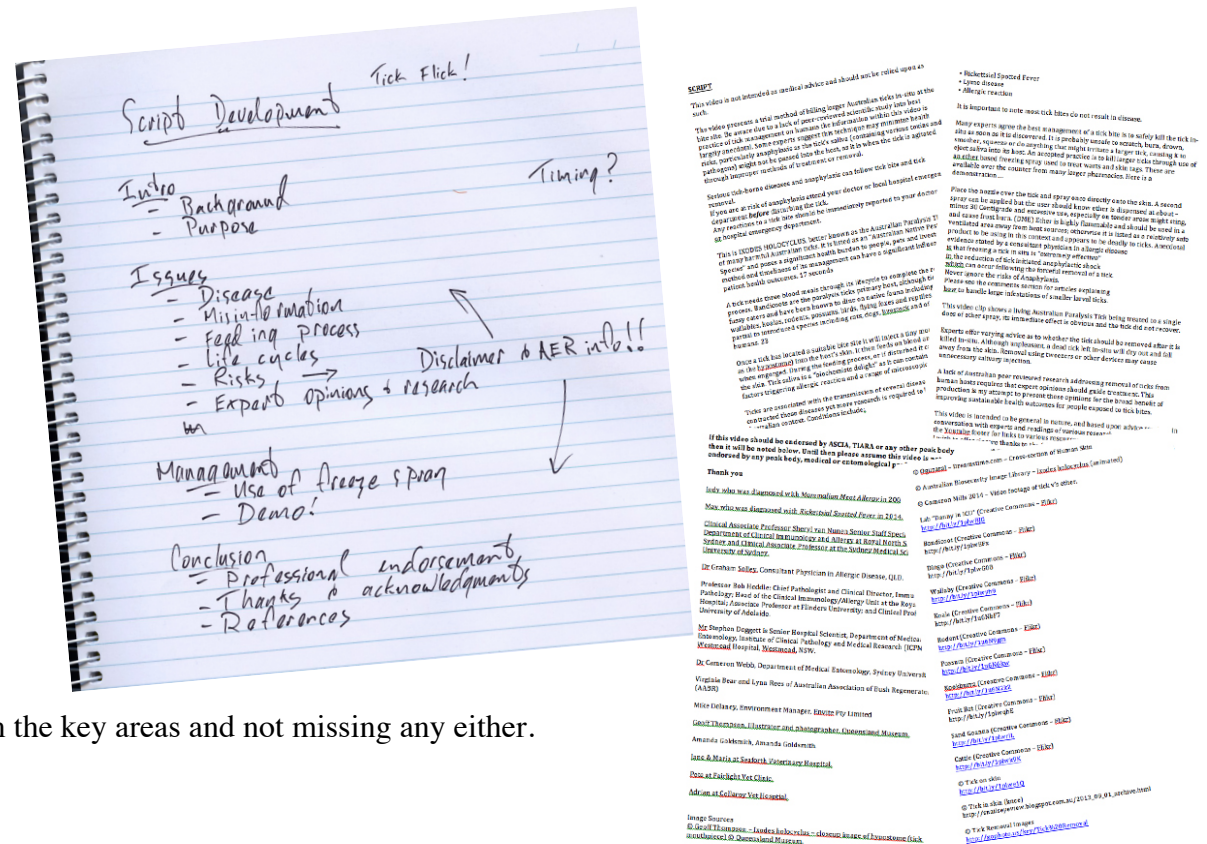 Tick Flick!
Script Development
Timing?
Intro
- Background
- Purpose
Issues
- Disease
- Misinformation
- Feeding process
Life cycles
- Risks →
- Expert opinions + research
Disclaimer & AER info!!
Management
- Use of freeze spray
- Demo!
Conclusion
- Professional endorsement,
- Thanks & acknowledgments
- References
the key areas and not missing any either.
SCRIPT
This video is not intended as medical advice and should not be relied upon as
such.
The video presents a trial method of killing larger Australian ticks in-situ at the
bite site. Be aware due to a lack of peer-reviewed scientific study into best
practice of tick management on humans the information within this video is
largely anecdotal. Some experts suggest this technique may minimise health
risks, particularly anaphylaxis as the tick's saliva (containing various toxins and
pathogens) might not be passed into the host, as it is when the tick is agitated
through improper methods of treatment or removal.
Serious tick-borne diseases and anaphylaxis can follow tick bite and tick
removal.
If you are at risk of anaphylaxis attend your doctor or local hospital emergen
department before disturbing the tick.
Any reactions to a tick bite should be immediately reported to your doctor
or hospital emergency department.
This is IXODES HOLOCYCLUS, better known as the Australian Paralysis T
of many harmful Australian ticks. It is listed as an "Australian Native Pes
Species" and poses a significant health burden to people, pets and livest
method and timeliness of its management can have a significant influen
patient health outcomes. 17 seconds
A tick needs three blood meals through its lifecycle to complete the r
process. Bandicoots are the paralysis ticks primary host, although th
fussy eaters and have been known to dine on native fauna including
wallabies, koalas, rodents, possums, birds, flying foxes and reptiles
partial to introduced species including cats, dogs, livestock and of
humans. 23
Once a tick has located a suitable bite site it will inject a tiny mou
as the hypostome) into the host's skin. It then feeds on blood or
when engorged. During the feeding process, or if disturbed it c
the skin. Tick saliva is a "biochemists delight" as it can contain
factors triggering allergic reaction and a range of microscopic
Ticks are associated with the transmission of several diseas
contracted these diseases yet more research is required to
stralian context. Conditions include;
• Rickettsial Spotted Fever
• Lyme disease
• Allergic reaction
It is important to note most tick bites do not result in disease.
Many experts agree the best management of a tick bite is to safely kill the tick in-
situ as soon as it is discovered. It is probably unsafe to scratch, burn, drown,
smother, squeeze or do anything that might irritate a larger tick, causing it to
eject saliva into its host. An accepted practice is to kill larger ticks through use of
an ether based freezing spray used to treat warts and skin tags. These are
available over the counter from many larger pharmacies. Here is a
demonstration....
Place the nozzle over the tick and spray once directly onto the skin. A second
spray can be applied but the user should know ether is dispensed at about -
minus 30 Centigrade and excessive use, especially on tender areas might sting,
and cause frost burn. (DME) Ether is highly flammable and should be used in a
ventilated area away from heat sources; otherwise it is listed as a relatively safe
product to be using in this context and appears to be deadly to ticks. Anecdotal
evidence stated by a consultant physician in allergic disease
is that freezing a tick in situ is "extremely effective"
in the reduction of tick initiated anaphylactic shock
which can occur following the forceful removal of a tick.
Never ignore the risks of Anaphylaxis.
Please see the comments section for articles explaining
how to handle large infestations of smaller larval ticks.
This video clip shows a living Australian Paralysis Tick being treated to a single
dose of ether spray, its immediate effect is obvious and the tick did not recover.
Experts offer varying advice as to whether the tick should be removed after it is
killed in-situ. Although unpleasant, a dead tick left in-situ will dry out and fall
away from the skin. Removal using tweezers or other devices may cause
unnecessary salivary injection.
A lack of Australian peer reviewed research addressing removal of ticks from
human hosts requires that expert opinions should guide treatment. This
production is my attempt to present those opinions for the broad benefit of
improving sustainable health outcomes for people exposed to tick bites.
This video is intended to be general in nature, and based upon advice
conversation with experts and readings of various
the Youtube footer for links to various
If this video should be endorsed by ASCIA, TIARA or any other peak body
then it will be noted below. Until then please assume this video is
endorsed by any peak body, medical or entomological
Thank you
Judy who was diagnosed with Mammalian Meat Allergy in 200
May who was diagnosed with Rickettsial Spotted Fever in 2014.
Clinical Associate Professor Sheryl van Nunen Senior Staff Speci
Department of Clinical Immunology and Allergy at Royal North S
Sydney and Clinical Associate Professor at the Sydney Medical Sc
University of Sydney.
Dr Graham Solley, Consultant Physician in Allergic Disease, QLD.
Professor Bob Heddle: Chief Pathologist and Clinical Director, Immu
Pathology; Head of the Clinical Immunology/Allergy Unit at the Roya
Hospital; Associate Professor at Flinders University; and Clinical Prof
University of Adelaide
Mr Stephen Doggett is Senior Hospital Scientist, Department of Medica
Entomology, Institute of Clinical Pathology and Medical Research (ICPM
Westmead Hospital, Westmead, NSW.
Dr Cameron Webb, Department of Medical Entomology, Sydney Universit
Virginia Bear and Lynn Rees of Australian Association of Bush Regenerato
(AABR)
Mike Delaney, Environment Manager, Envite Pty Limited
Geoff Thompson, Illustrator and photographer, Queensland Museum.
Amanda Goldsmith, Amanda Goldsmith
Jane & Maria at Seaforth Veterinary Hospital.
Pete at Fairlight Vet Clinic.
Adrian at Collaroy Vet Hospital.
Image Sources
© Geoff Thompson – Ixodes holocyclus – closeup image of hypostome (tick
mouthpiece) © Queensland Museum.
– Dreamstime.com – Cross-section of Human Skin
© Australian Biosecurity Image Library – Ixodes holocyclus (animated)
© Cameron Mills 2014 – Video footage of tick v's ether.
(Creative Commons – Flikr)
Bandicoot (Creative Commons – Flikr)
Dingo (Creative Commons – Flikr)
Wallaby (Creative Commons – Flikr)
Koala (Creative Commons – Flikr)
Rodent (Creative Commons – Flikr)
Possum (Creative Commons – Flikr)
Kookaburra (Creative Commons – Flikr)
Fruit Bat (Creative Commons – Flikr)
Sand Goanna (Creative Commons – Flikr)
Cattle (Creative Commons – Flikr)
© Tick on skin
© Tick in skin (knee)
© Tick Removal Images